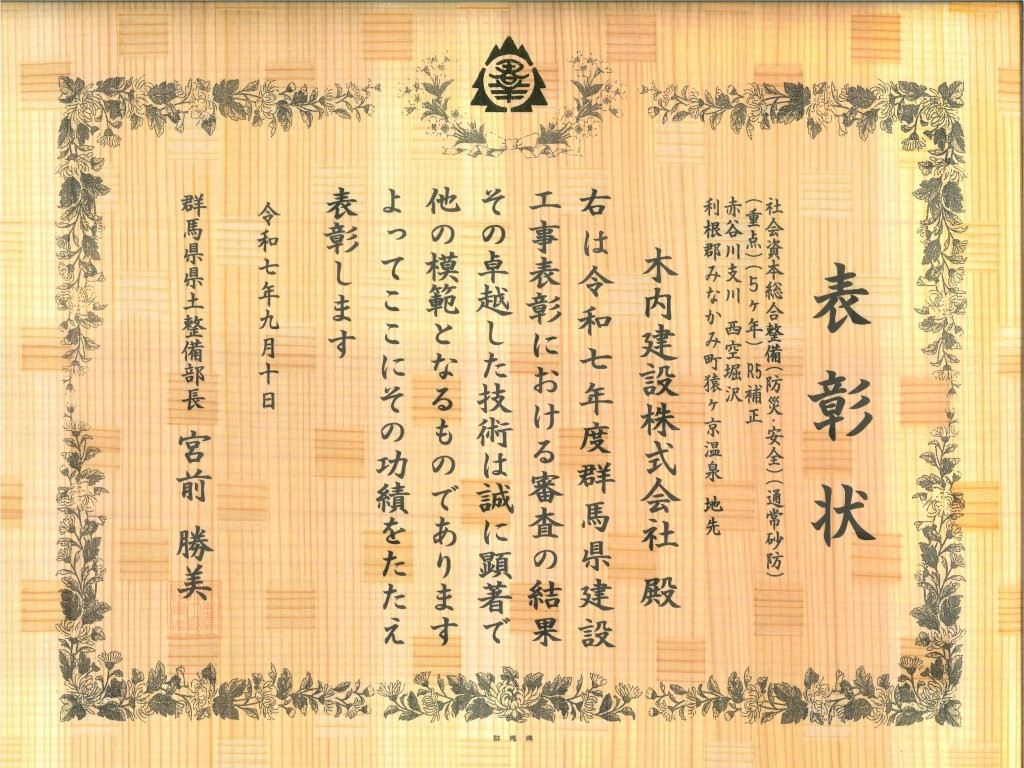 表彰状
社会資本総合整備(防災・安全)(通常砂防)
(重点)(5ヶ年) R5補正
赤谷川支川 西空堀沢
利根郡みなかみ町猿ヶ京温泉 地先
木内建設株式会社 殿
右は令和七年度群馬県建設
工事表彰における審査の結果
その卓越した技術は誠に顕著で
他の模範となるものであります
よってここにその功績をたたえ
表彰します
令和七年九月十日
群馬県県土整備部長 宮前 勝美
群馬県